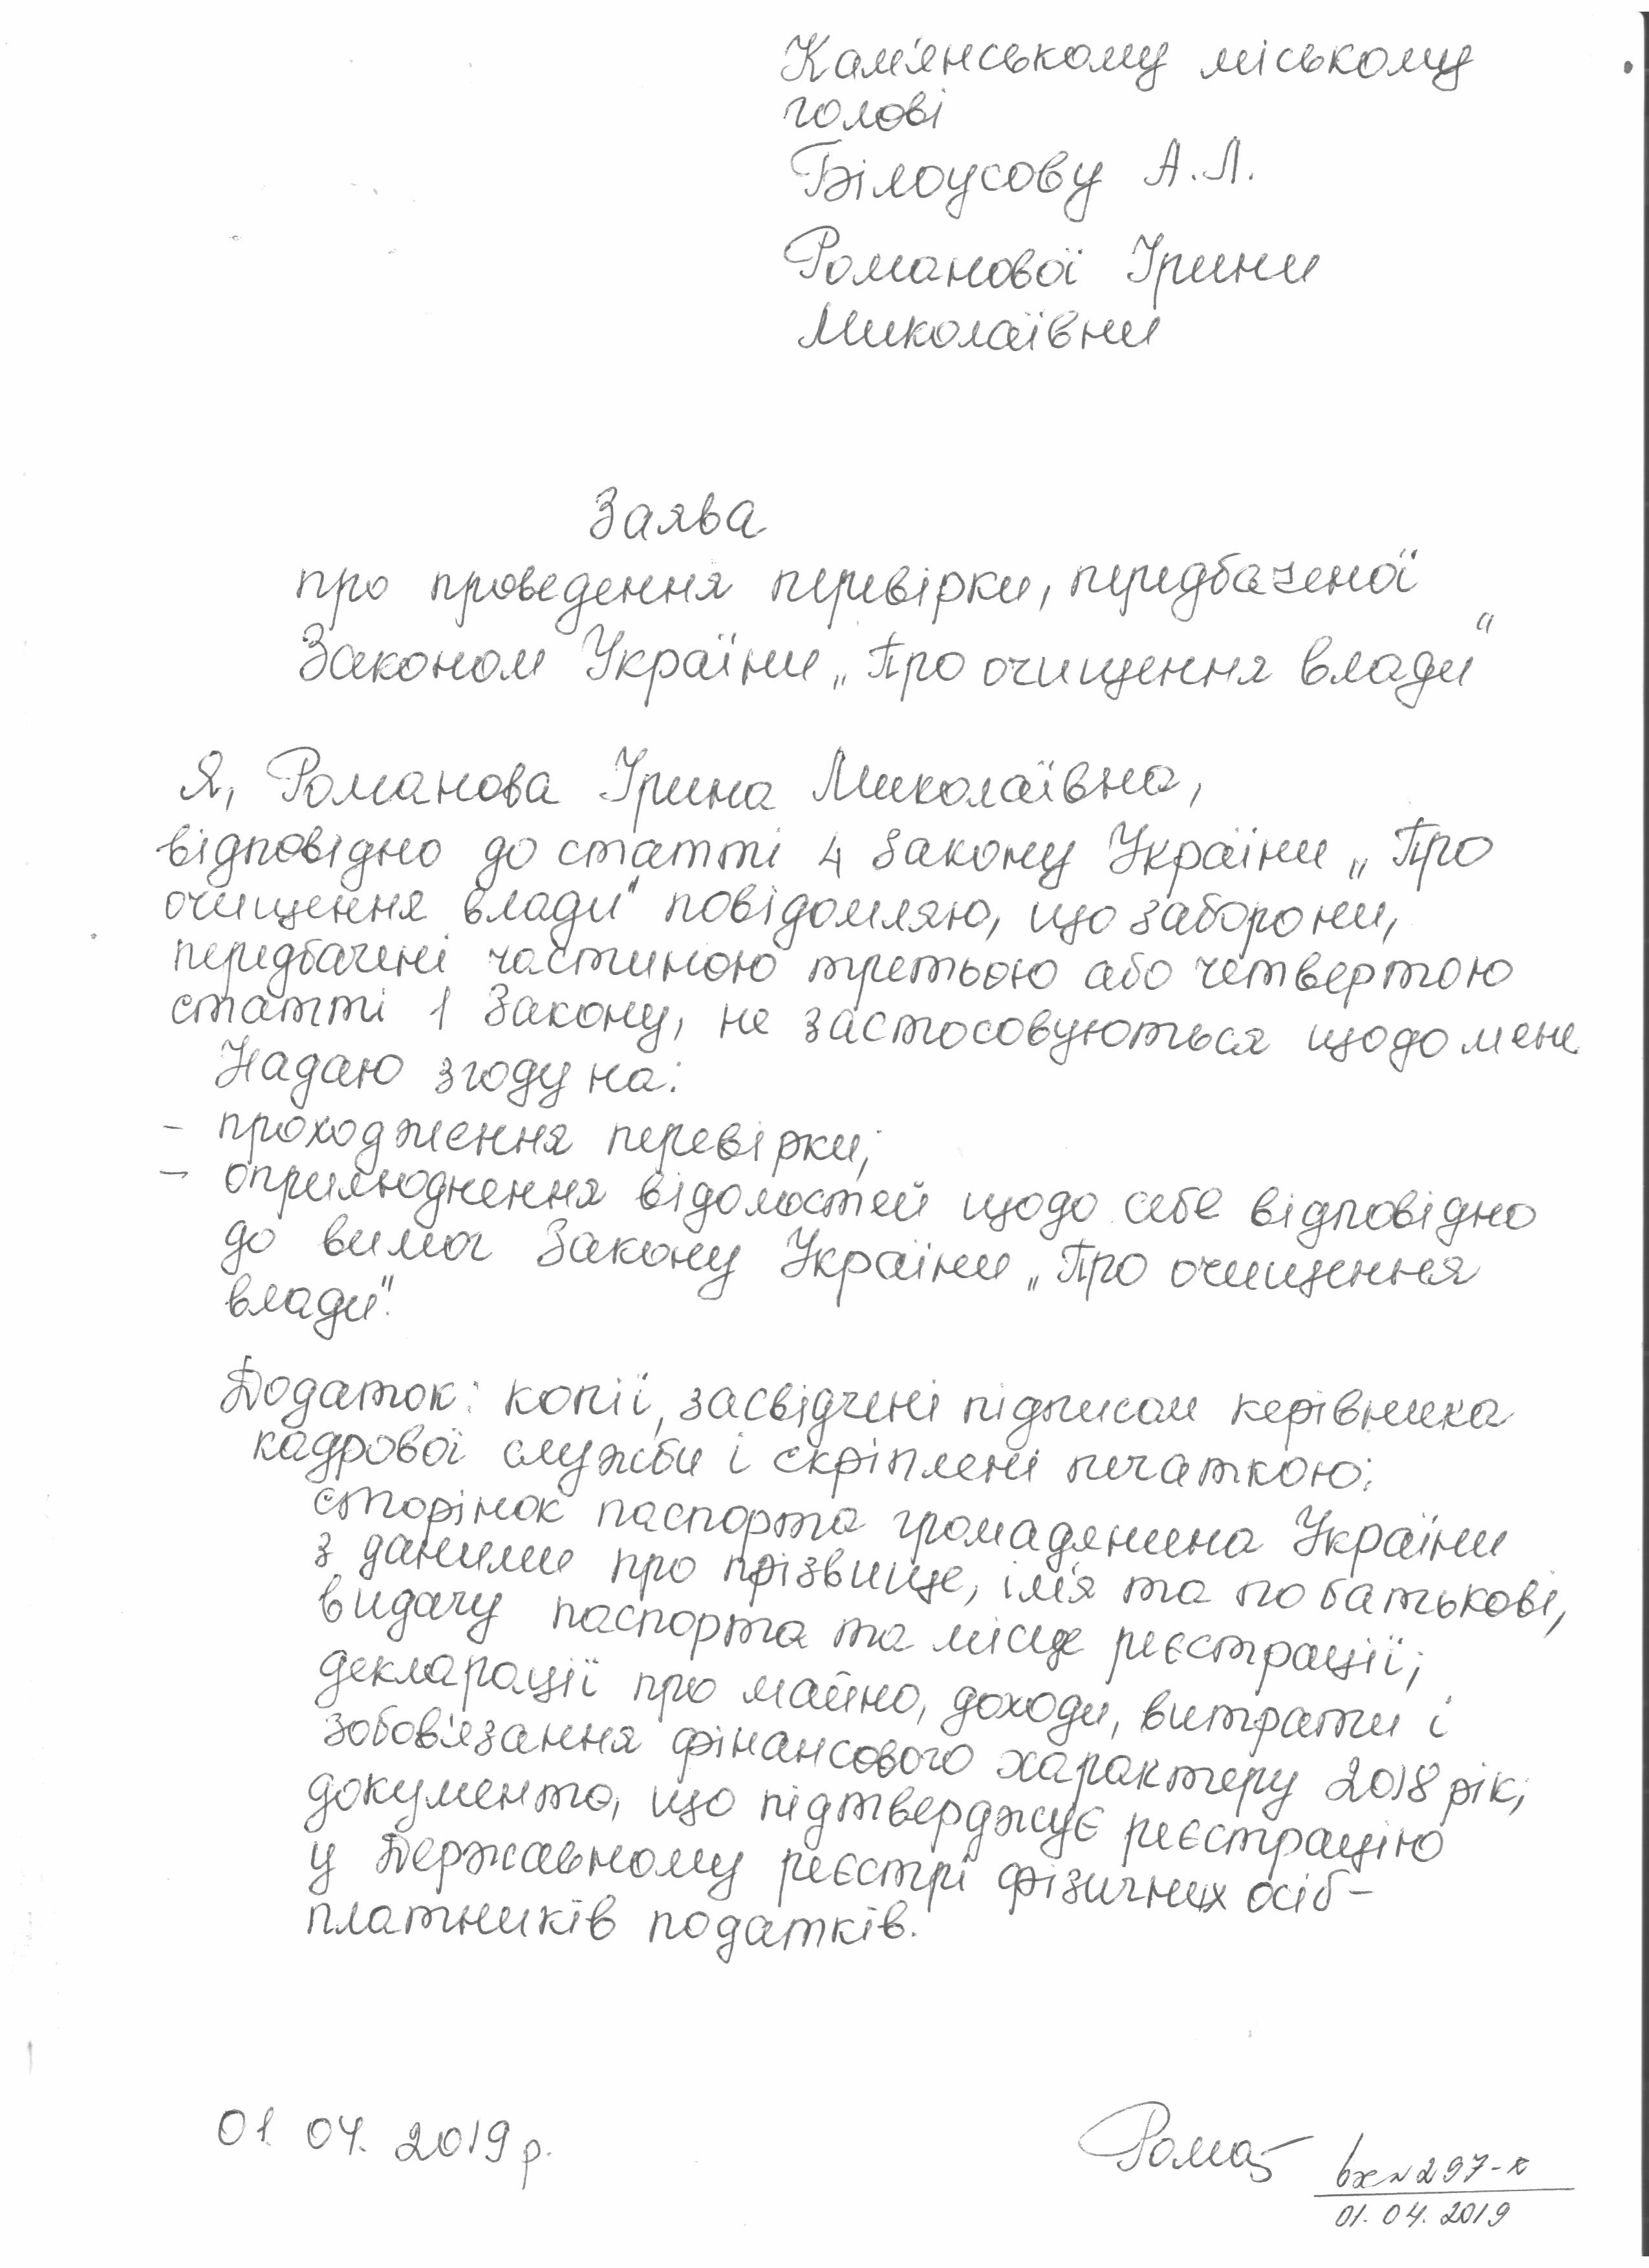 Кам'янському міському
голові
Білоусову А.Л.
Романової Ірини
Миколаївни
Заява
про проведення перевірки, передбаченої
Законом України „Про очищення влади"
Я, Романова Ірина Миколаївна,
відповідно до статті 4 Закону України „Про
очищення влади" повідомляю, що заборони,
передбачені частиною третьою або четвертою
статті 1 Закону, не застосовуються щодо мене
Надаю згоду на:
- проходження перевірки;
- оприлюднення відомостей щодо себе відповідно
до вимог Закону України „Про очищення
влади".
Додаток: копії, засвідчені підписом керівника
кадрової служби і скріплені печаткою:
сторінок паспорта громадянина України
з даними про прізвище, ім'я та по батькові,
видачу паспорта та місце реєстрації;
декларації про майно, доходи, витрати і
зобов'язання фінансового характеру 2018 рік;
документа, що підтверджує реєстрацію
у Державному реєстрі фізичних осіб-
платників податків.
01.04.2019р.
Рома
вх№297-к
01.04.2019